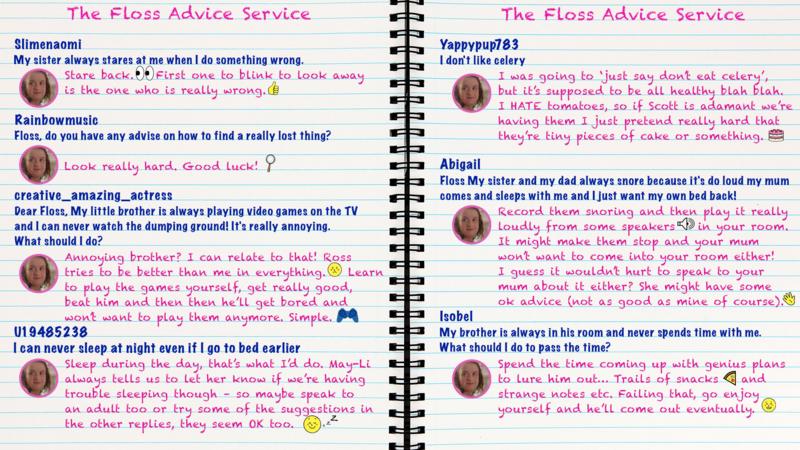 The Floss Advice Service
Slimenaomi
My sister always stares at me when I do something wrong.
Stare back. 👀 First one to blink to look away
is the one who is really wrong. 👍
Rainbowmusic
Floss, do you have any advise on how to find a really lost thing?
Look really hard. Good luck! 🔍
creative_amazing_actress
Dear Floss, My little brother is always playing video games on the TV
and I can never watch the dumping ground! It's really annoying.
What should I do?
Annoying brother? I can relate to that! Ross
tries to be better than me in everything. Learn
to play the games yourself, get really good,
beat him and then then he'll get bored and
won't want to play them anymore. Simple. 🎮
U19485238
I can never sleep at night even if I go to bed earlier
Sleep during the day, that's what I'd do. May-Li
always tells us to let her know if we're having
trouble sleeping though - so maybe speak to
an adult too or try some of the suggestions in
the other replies, they seem OK too. zZ
The Floss Advice Service
Yappypup783
I don't like celery
I was going to 'just say don't eat celery',
but it's supposed to be all healthy blah blah.
I HATE tomatoes, so if Scott is adamant we're
having them I just pretend really hard that
they're tiny pieces of cake or something. 🍰
Abigail
Floss My sister and my dad always snore because it's do loud my mum
comes and sleeps with me and I just want my own bed back!
Record them snoring and then play it really
loudly from some speakers 🔊 in your room.
It might make them stop and your mum
won't want to come into your room either!
I guess it wouldn't hurt to speak to your
mum about it either? She might have some
ok advice (not as good as mine of course). 👋
Isobel
My brother is always in his room and never spends time with me.
What should I do to pass the time?
Spend the time coming up with genius plans
to lure him out... Trails of snacks 🍕 and
strange notes etc. Failing that, go enjoy
yourself and he'll come out eventually.